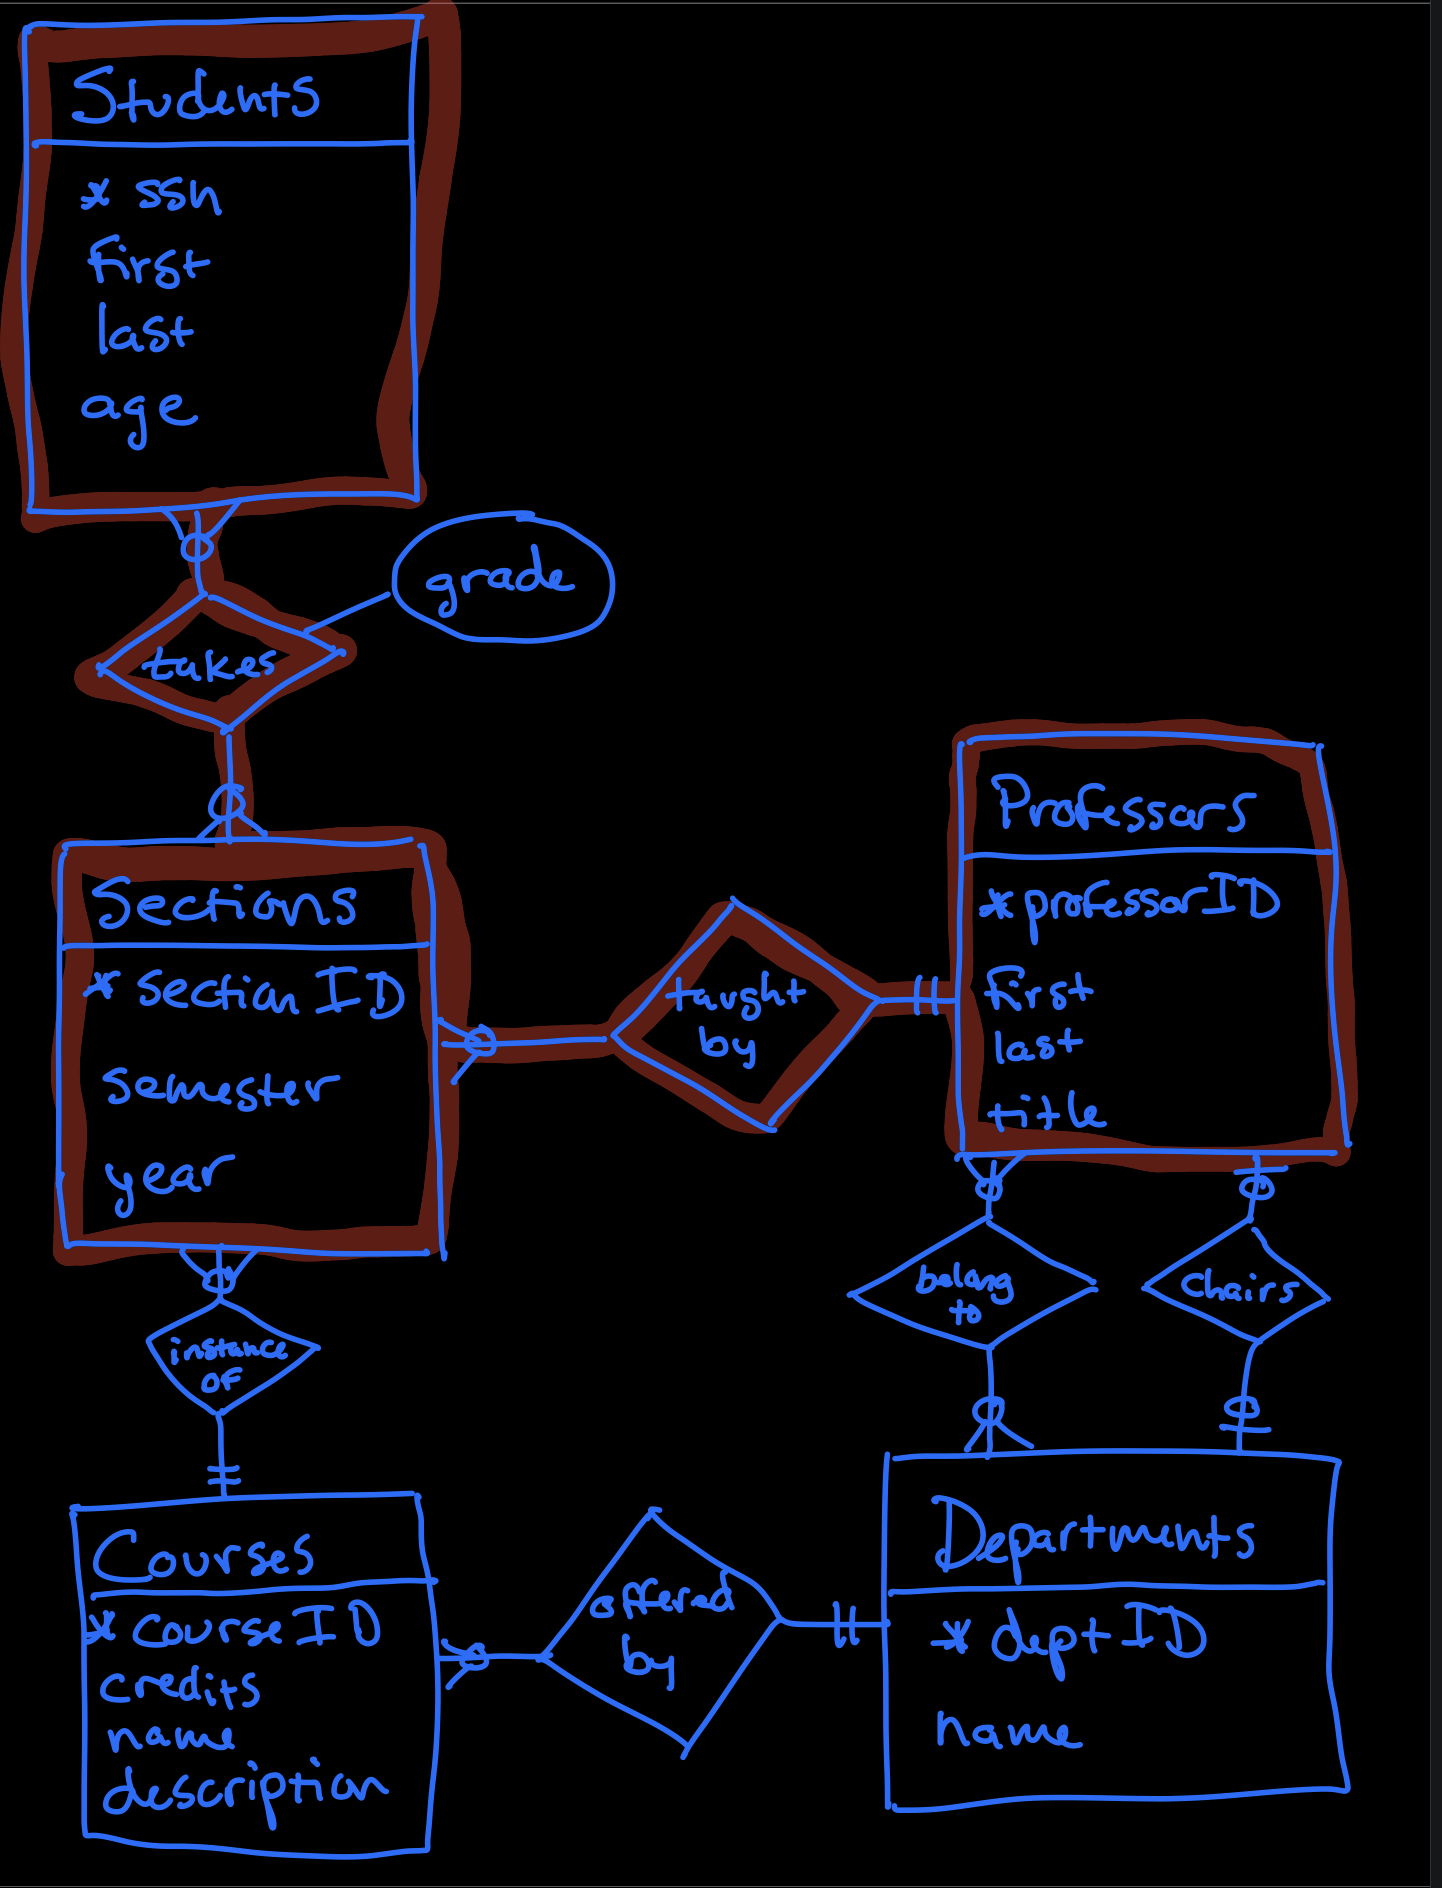 Students
* ssn
first
last
age
grade
takes
Sections
* section ID
semester
year
taught
by
Professors
* professor ID
first
last
title
instance
of
belong
to
chairs
Courses
* course ID
credits
name
description
offered
by
Departments
* dept ID
name